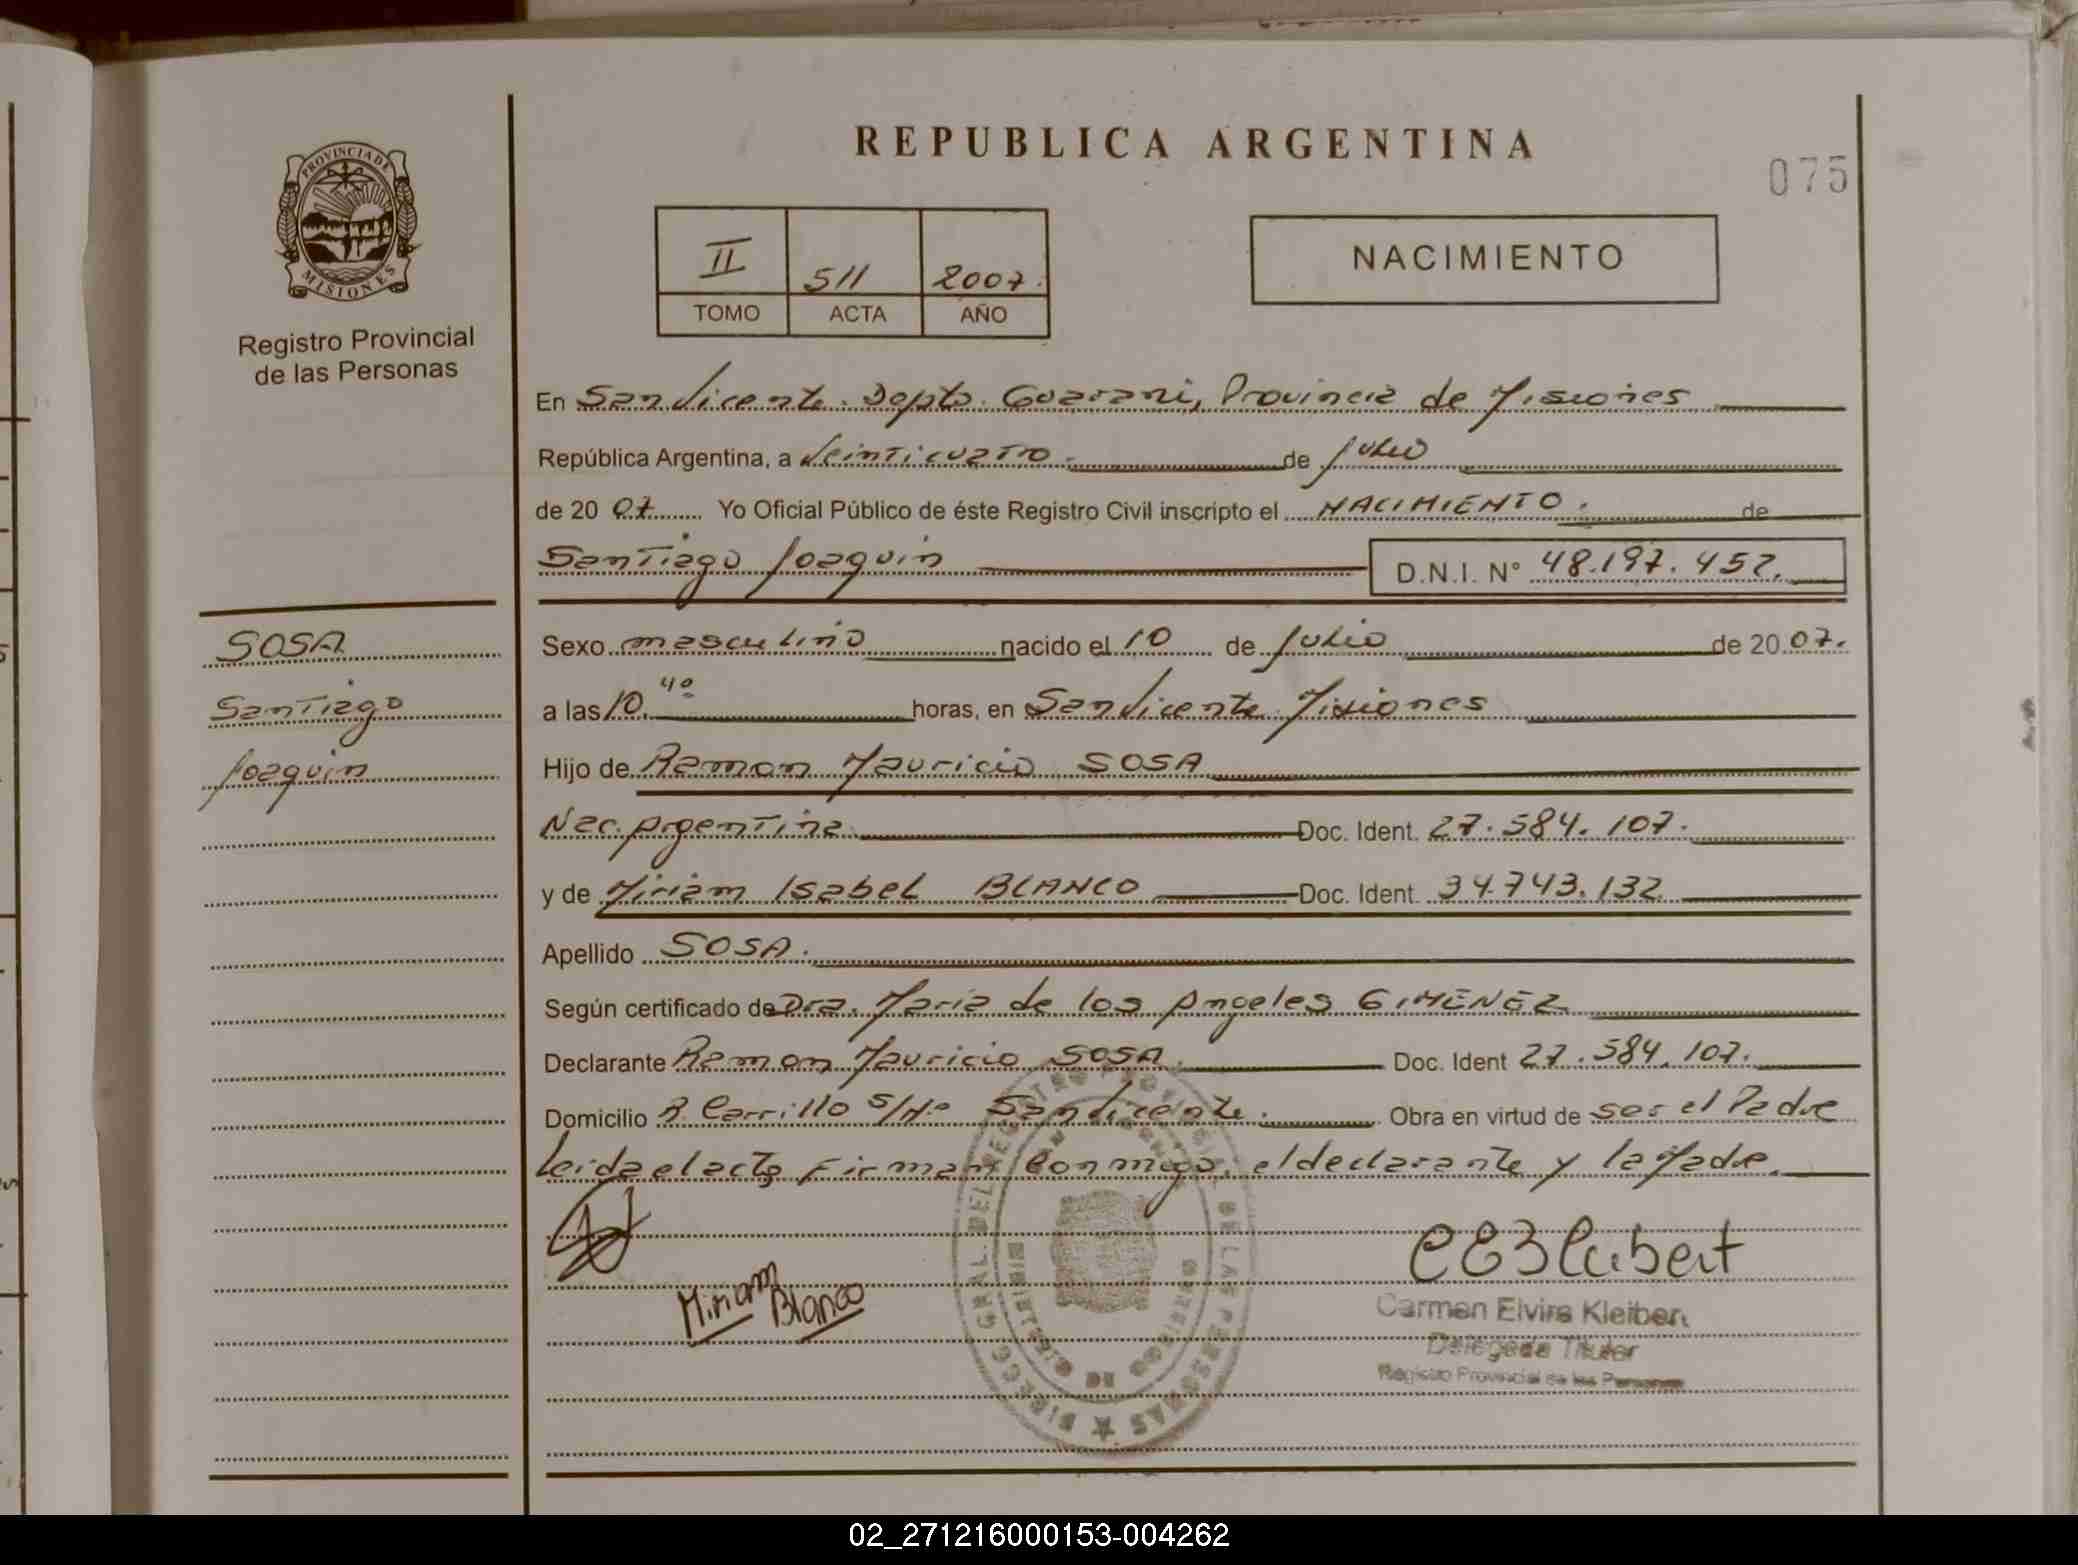 PROVINCIA DE
MISIONES
Registro Provincial
de las Personas
REPUBLICA ARGENTINA
075
II 511 2007.
TOMO ACTA AÑO
NACIMIENTO
En San Vicente. Depto. Guarani, Provincia de Misiones
República Argentina, a Veinticuatro. de Julio
de 20 07 Yo Oficial Público de éste Registro Civil inscripto el NACIMIENTO. de
Santiago Joaquin D.N.I. N° 48.197.452.
SOSA
Santiago
Joaquin
Sexo masculino nacido el 10 de Julio de 20 07.
a las 10.40 horas, en San Vicente Misiones
Hijo de Ramon Mauricio SOSA
Nac. Argentina. Doc. Ident. 27.584.107.
y de Miriam Isabel BLANCO Doc. Ident. 34.743.132
Apellido SOSA.
Según certificado de Dra. Maria de los Angeles GIMENEZ
Declarante Ramon Mauricio SOSA. Doc. Ident 27.584.107.
Domicilio R. Carrillo S/Nº San Vicente. Obra en virtud de ser el Padre
Leida el acta Firman Conmigo, el declarante y la Madre.
Miriam Blanco
Carmen Elvira Kleiber
Delegada Titular
Registro Provincial de las Personas
DIRECC. GRAL. DEL REGISTRO PROVINCIAL DE LAS PERSONAS
02_271216000153-004262